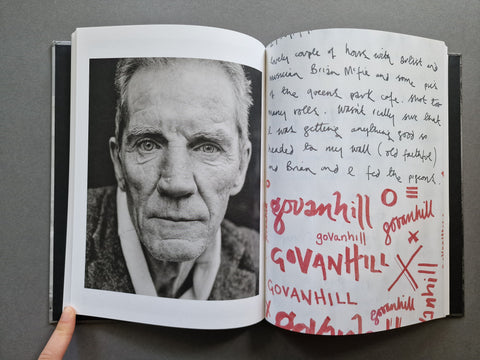 lovely couple of hours with artist and
musician Brian McFie and some pics
in the queens park cafe. Shot too
many rolls. Wasn't really sure that
I was getting anything good so
headed to my wall (old faithful)
and Brian and I fed the pigeons.
govanhill
govanhill
govanhill
GOVANHILL
GOVANHILL
govanhill
govanhill